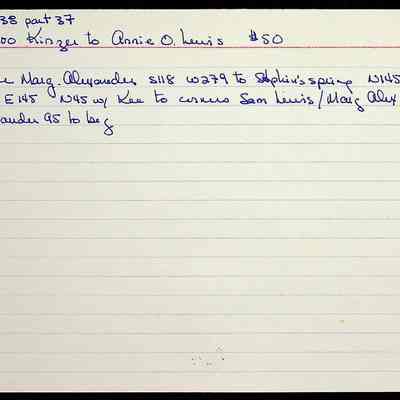 38 part 37
00 Kinzer to Annie O. Lewis $50
Marg. Alexander S118 W279 to Stephen's spring N145
E145 N45 W Kee to corners Sam Lewis / Marg Alex
ander 95 to beg